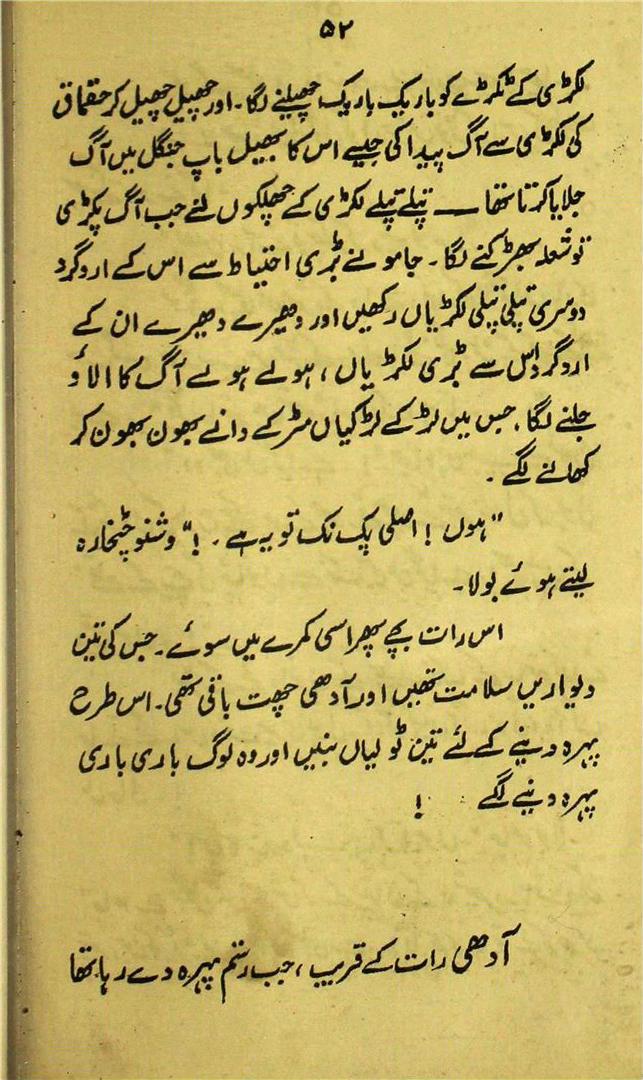 ۵۲
لکڑی کے ٹکڑے کو باریک باریک چھیلنے لگا۔ اور چھیل چھیل کر حقماق
کی لکڑی سے آگ پیدا کی جیسے اس کا بھیل باپ جنگل میں آگ
جلایا کرتا تھا ــــ پتلے پتلے لکڑی کے چھلکوں نے جب آگ پکڑی
تو شعلہ بھڑکنے لگا۔ جامو نے بڑی احتیاط سے اس کے اردگرد
دوسری پتلی پتلی لکڑیاں رکھیں اور دھیرے دھیرے ان کے
اردگرد اُس سے بڑی لکڑیاں، ہولے ہولے آگ کا الاؤ
جلنے لگا، جس میں لڑکے لڑکیاں مٹر کے دانے بھون بھون کر
کھانے لگے۔
"ہوں! اصلی پک نک تو یہ ہے۔!" وشنو چٹخارہ
لیتے ہوئے بولا۔
اس رات بچے پھر اسی کمرے میں سوئے۔ جس کی تین
دیواریں سلامت تھیں اور آدھی چھت باقی تھی۔ اس طرح
پہرہ دینے کے لئے تین ٹولیاں بنیں اور وہ لوگ باری باری
پہرہ دینے لگے !
آدھی رات کے قریب، جب رستم پہرہ دے رہا تھا